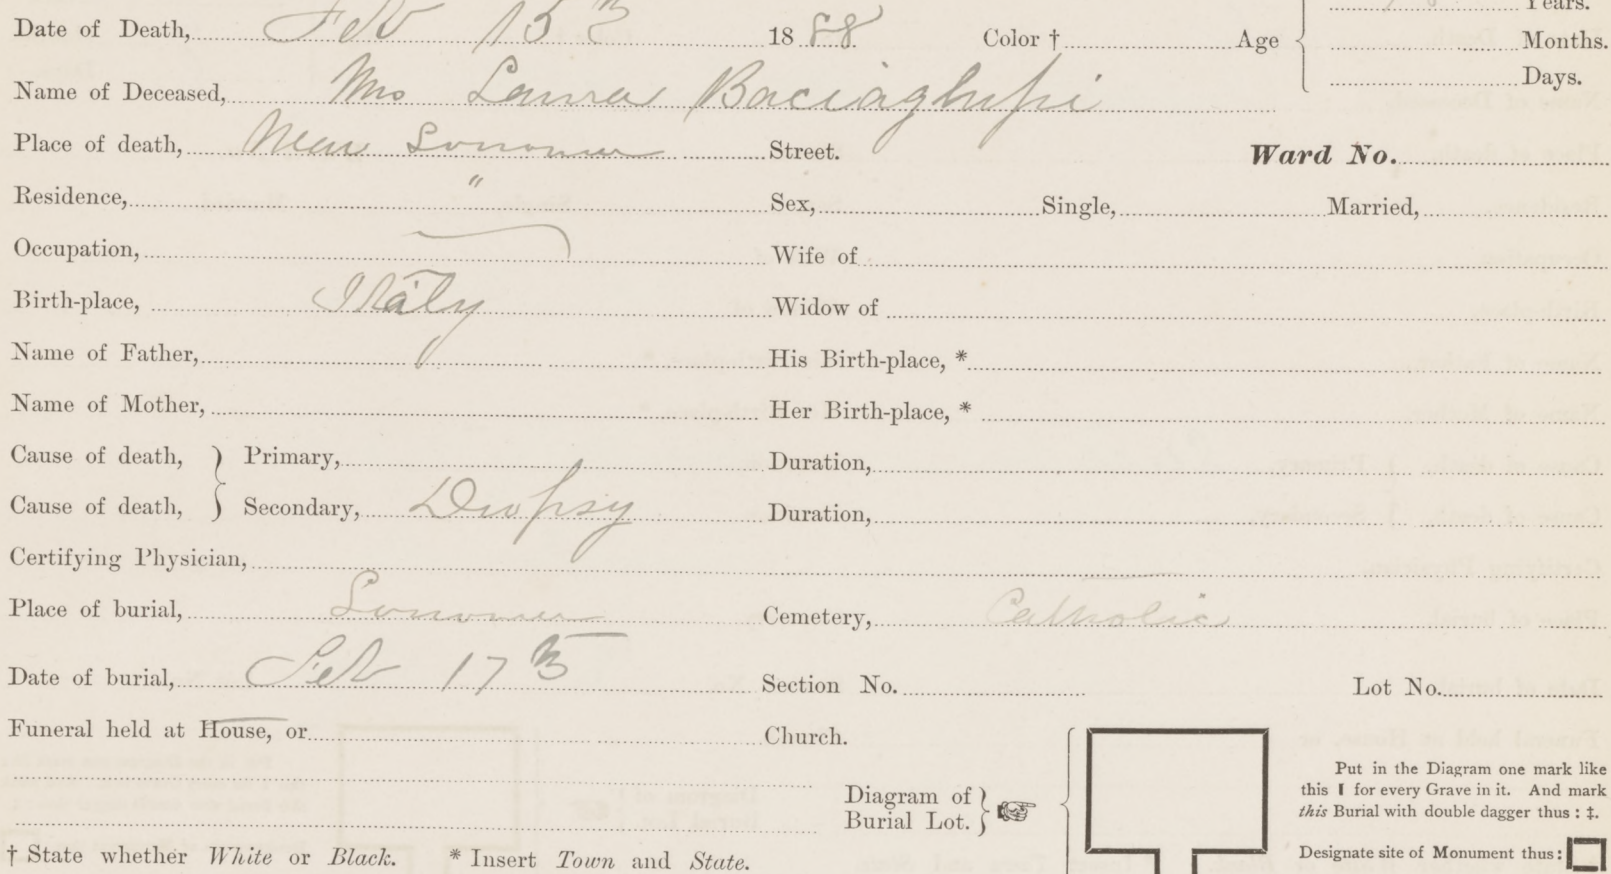 Years.
Date of Death, Feb 15 1888 Color † Age Months.
Days.
Name of Deceased, Mrs Laura Bacigalupi
Place of death, Near Sonoma Street. Ward No.
Residence, " Sex, Single, Married,
Occupation, Wife of
Birth-place, Italy Widow of
Name of Father, His Birth-place, *
Name of Mother, Her Birth-place, *
Cause of death, } Primary, Duration,
Cause of death, } Secondary, Dropsy Duration,
Certifying Physician,
Place of burial, Sonoma Cemetery, Catholic
Date of burial, Feb 17 Section No. Lot No.
Funeral held at House, or Church.
Diagram of Burial Lot.
Put in the Diagram one mark like
this I for every Grave in it. And mark
this Burial with double dagger thus : ‡.
Designate site of Monument thus :
† State whether White or Black. * Insert Town and State.